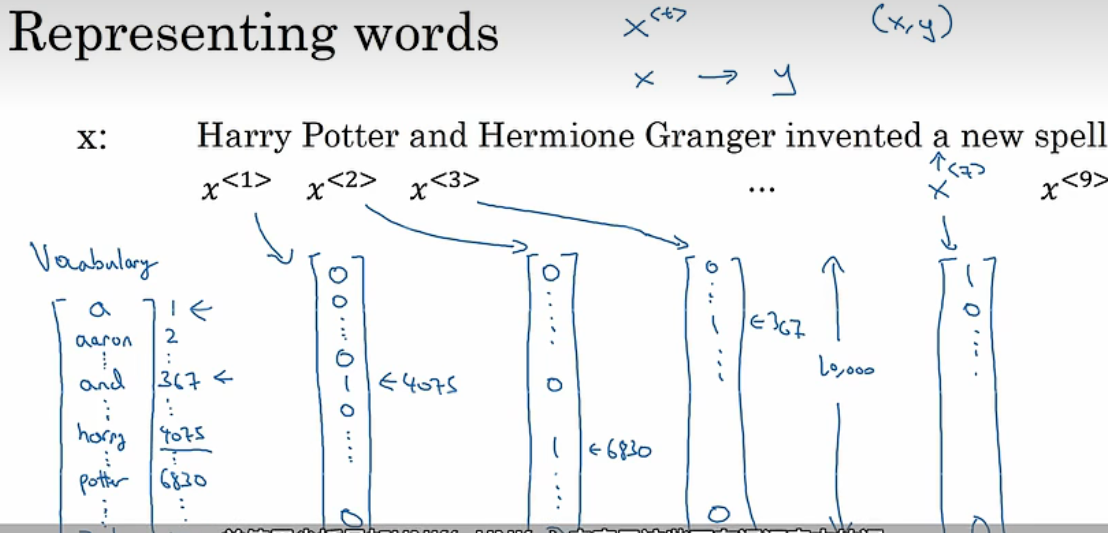 Representing words
x<t>
(x,y)
x → y
x: Harry Potter and Hermione Granger invented a new spell
x<1> x<2> x<3> ... x<7> x<9>
Vocabulary
a 1 ←
aaron 2
and 367 ←
harry 4075
potter 6830
0
0
0
1 ← 4075
0
0
0
0
1 ← 6830
0
1 ← 367
0
10,000
1
0